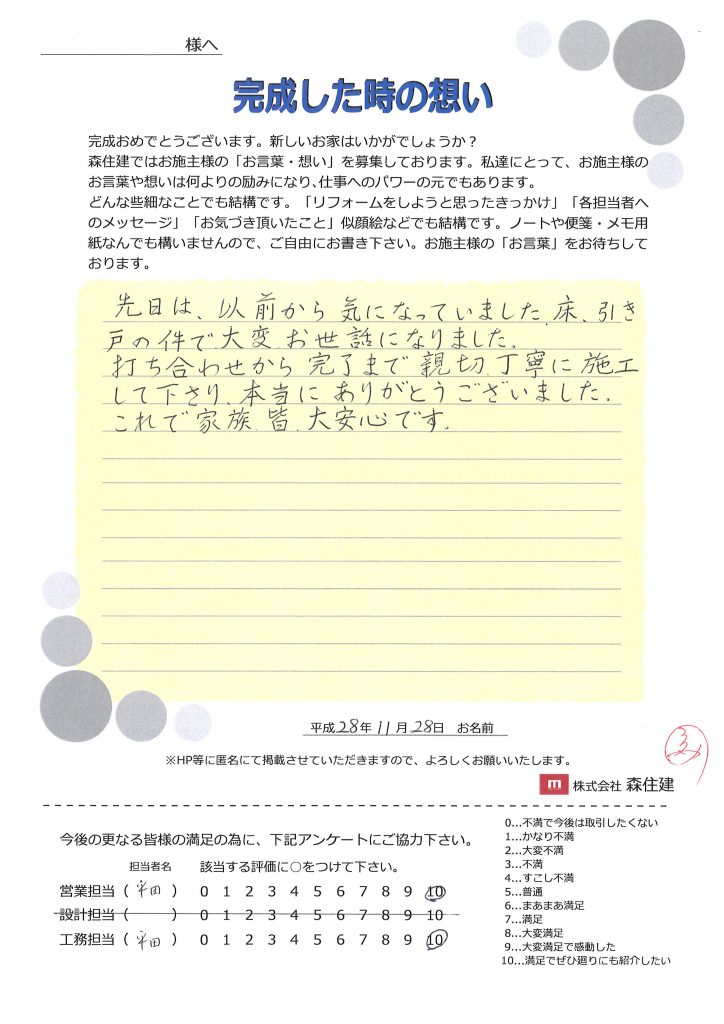 様へ
完成した時の想い
完成おめでとうございます。新しいお家はいかがでしょうか？
森住建ではお施主様の「お言葉・想い」を募集しております。私達にとって、お施主様の
お言葉や想いは何よりの励みになり、仕事へのパワーの元でもあります。
どんな些細なことでも結構です。「リフォームをしようと思ったきっかけ」「各担当者へ
のメッセージ」「お気づき頂いたこと」似顔絵などでも結構です。ノートや便箋・メモ用
紙なんでも構いませんので、ご自由にお書き下さい。お施主様の「お言葉」をお待ちして
おります。
先日は、以前から気になっていました、床、引き
戸の件で大変お世話になりました。
打ち合わせから完了まで親切、丁寧に施工
して下さり、本当にありがとうございました。
これで家族皆、大安心です。
平成28年11月28日 お名前
※HP等に匿名にて掲載させていただきますので、よろしくお願いいたします。
m 株式会社 森住建
今後の更なる皆様の満足の為に、下記アンケートにご協力下さい。
担当者名 該当する評価に○をつけて下さい。
営業担当（平田）0 1 2 3 4 5 6 7 8 9 10
設計担当（ ）0 1 2 3 4 5 6 7 8 9 10
工務担当（平田）0 1 2 3 4 5 6 7 8 9 10
0…不満で今後は取引したくない
1…かなり不満
2…大変不満
3…不満
4…すこし不満
5…普通
6…まあまあ満足
7…満足
8…大変満足
9…大変満足で感動した
10…満足でぜひ廻りにも紹介したい